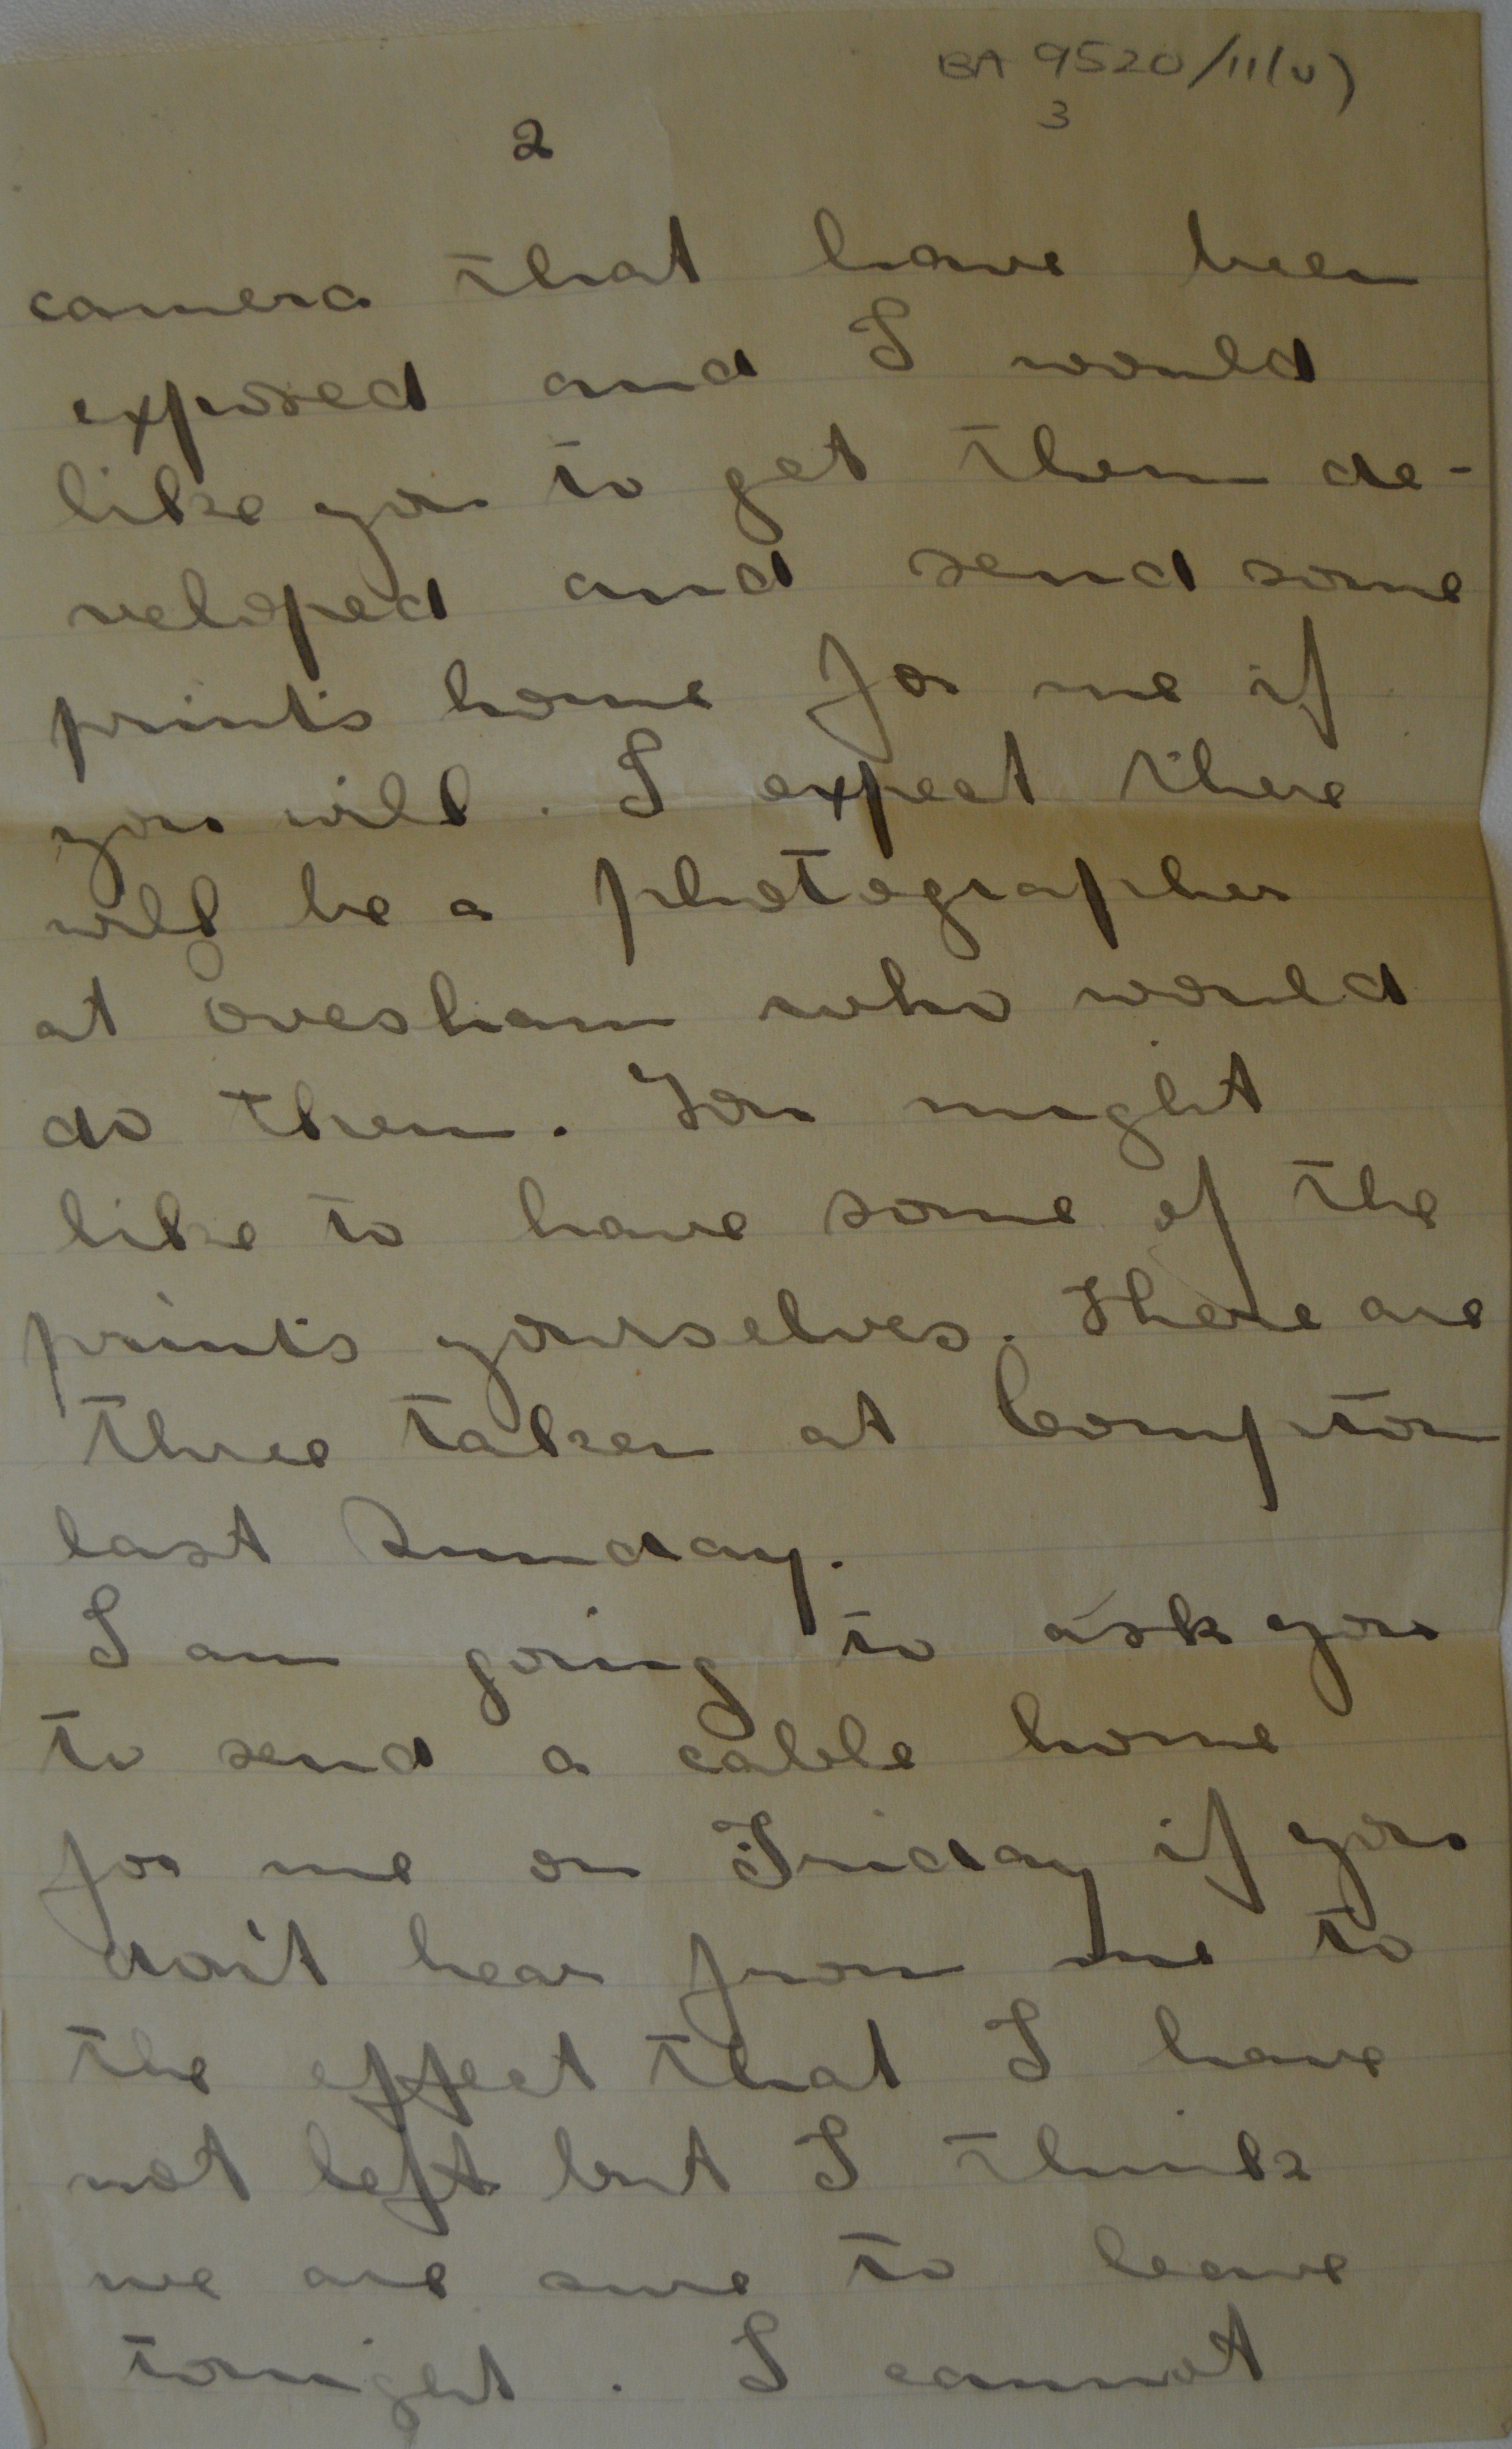 BA 9520/11(v)
3
2
camera that have been
exposed and I would
like you to get them de-
veloped and send some
prints home for me if
you will. I expect there
will be a photographer
at Ovesham who would
do them. You might
like to have some of the
prints yourselves. There are
three taken at Compton
last Sunday.
I am going to ask you
to send a cable home
for me on Friday if you
don't hear from me to
the effect that I have
not left but I think
we are sure to leave
tonight. I cannot